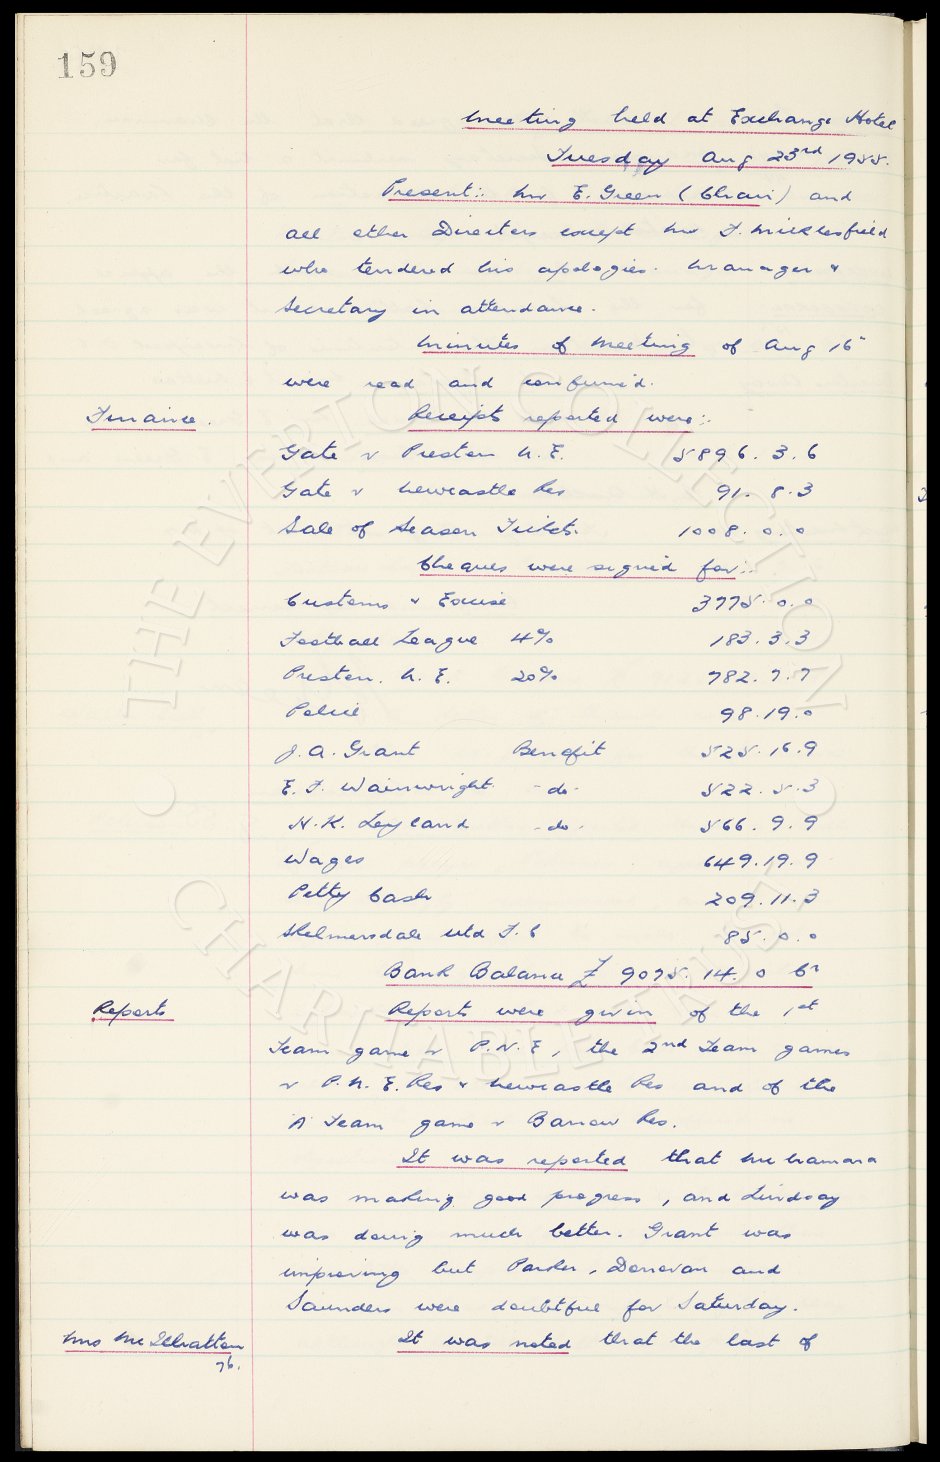 159
Meeting held at Exchange Hotel
Tuesday Aug 23rd 1955.
Present:: Mr E. Green (Chair) and
all other Directors except Mr F. Micklesfield
who tendered his apologies. Manager &
Secretary in attendance.
Minutes of Meeting of Aug 16"
were read and confirmed.
Finance. Receipts reported were::
Gate v Preston N.E. 5896. 3. 6
Gate v Newcastle Res 91. 8. 3
Sale of Season Tickets. 1008. 0. 0
Cheques were signed for::
Customs & Excise 3775. 0. 0
Football League 4% 183. 3. 3
Preston. N. E. 20% 782. 7. 7
Police 98. 19. 0
J. A. Grant Benefit 525. 16. 9
E. F. Wainwright - do - 522. 5. 3
H. K. Leyland - do - 566. 9. 9
Wages 649. 19. 9
Petty Cash 209. 11. 3
Skelmersdale Utd F. C 85. 0. 0
Bank Balance £ 9075. 14. 0 Cr
Reports Reports were given of the 1st
Team game v P.N.E, the 2nd Team games
v P. N. E. Res & Newcastle Res and of the
'A' Team game v Barrow Res.
It was reported that McNamara
was making good progress, and Lindsay
was doing much better. Grant was
improving but Parker, Donovan and
Saunders were doubtful for Saturday.
Mrs McIlhatton It was noted that the last of
76.
THE EVERTON COLLECTION
CHARITABLE TRUST